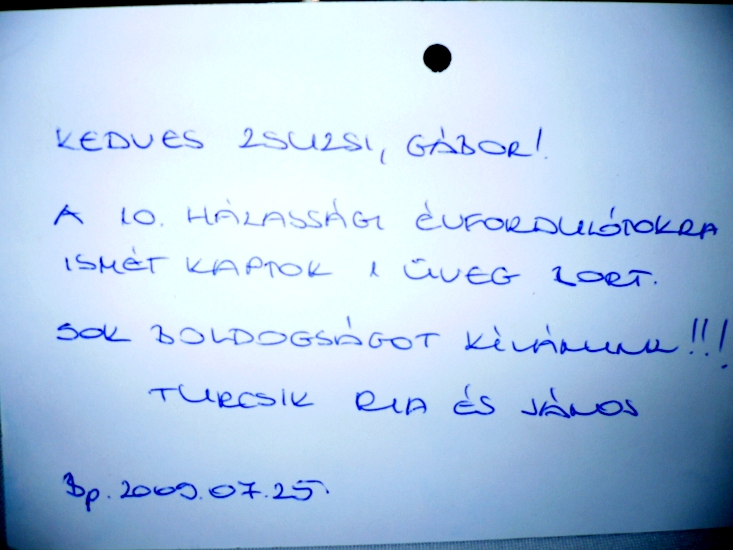 KEDVES ZSUZSI, GÁBOR!
A 10. HÁZASSÁGI ÉVFORDULÓTOKRA
ISMÉT KAPTOK 1 ÜVEG BORT.
SOK BOLDOGSÁGOT KÍVÁNUNK!!!
TURCSIK RIA ÉS JÁNOS
Bp. 2009.07.25.